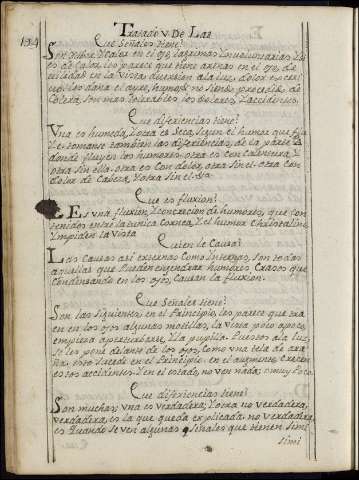 194
Tratado V. De Las
Que Señales tiene?
Son dolor, Y Calor en el ojo, lagrimas Involuntarias, Y a
es de Calor, les parece que tiene arenas en el ojo, di
en la Vista, a la luz, dolor
les daña el ayre, humor no siendo, precepida de
Colera, son mas tolerables los dolores, Y accidentes.
Que diferiencias tiene?
Una es humeda, Y otra es Seca, segun el humor que
Y tomanse tambien las diferiencias, de la parte a
donde fluyen los humores, otra es con Calentura, Y
otra sin ella, otra es Con dolor, otra sin el, otra Con
dolor de Cabeza, Y otra Sin el &a
Que es fluxion?
Es una fluxion, Y concrecion de humores, que con
tenidos entre la tunica Cornea, Y el humor Christalino
Ympiden la Vista
Quien la Causa?
Las Causas asi externas Como internas, son todas
aquellas que Pueden engendrar humores Crasos que
Condensando en los ojos, Causan la fluxion.
Que Señales tiene?
Son las siguientes, en el Principio, les parece que tra
en en los ojos algunas motillas, la vista poco apoco,
empieza a perturbarse, Y la pupilla. Puestos a la luz,
se les pone delante de los ojos, como una tela de ara
ña; esto sucede en el Principio. en el aumento, crecen
estos accidentes. Y en el estado, no ven nada, o muy Poco.
Que diferiencias tiene?
Son muchas; una es verdadera, Y otra no verdadera,
verdadera, es la que queda explicada. no verdadera,
es quando se ven algunas Señales que tienen Simi
Simi